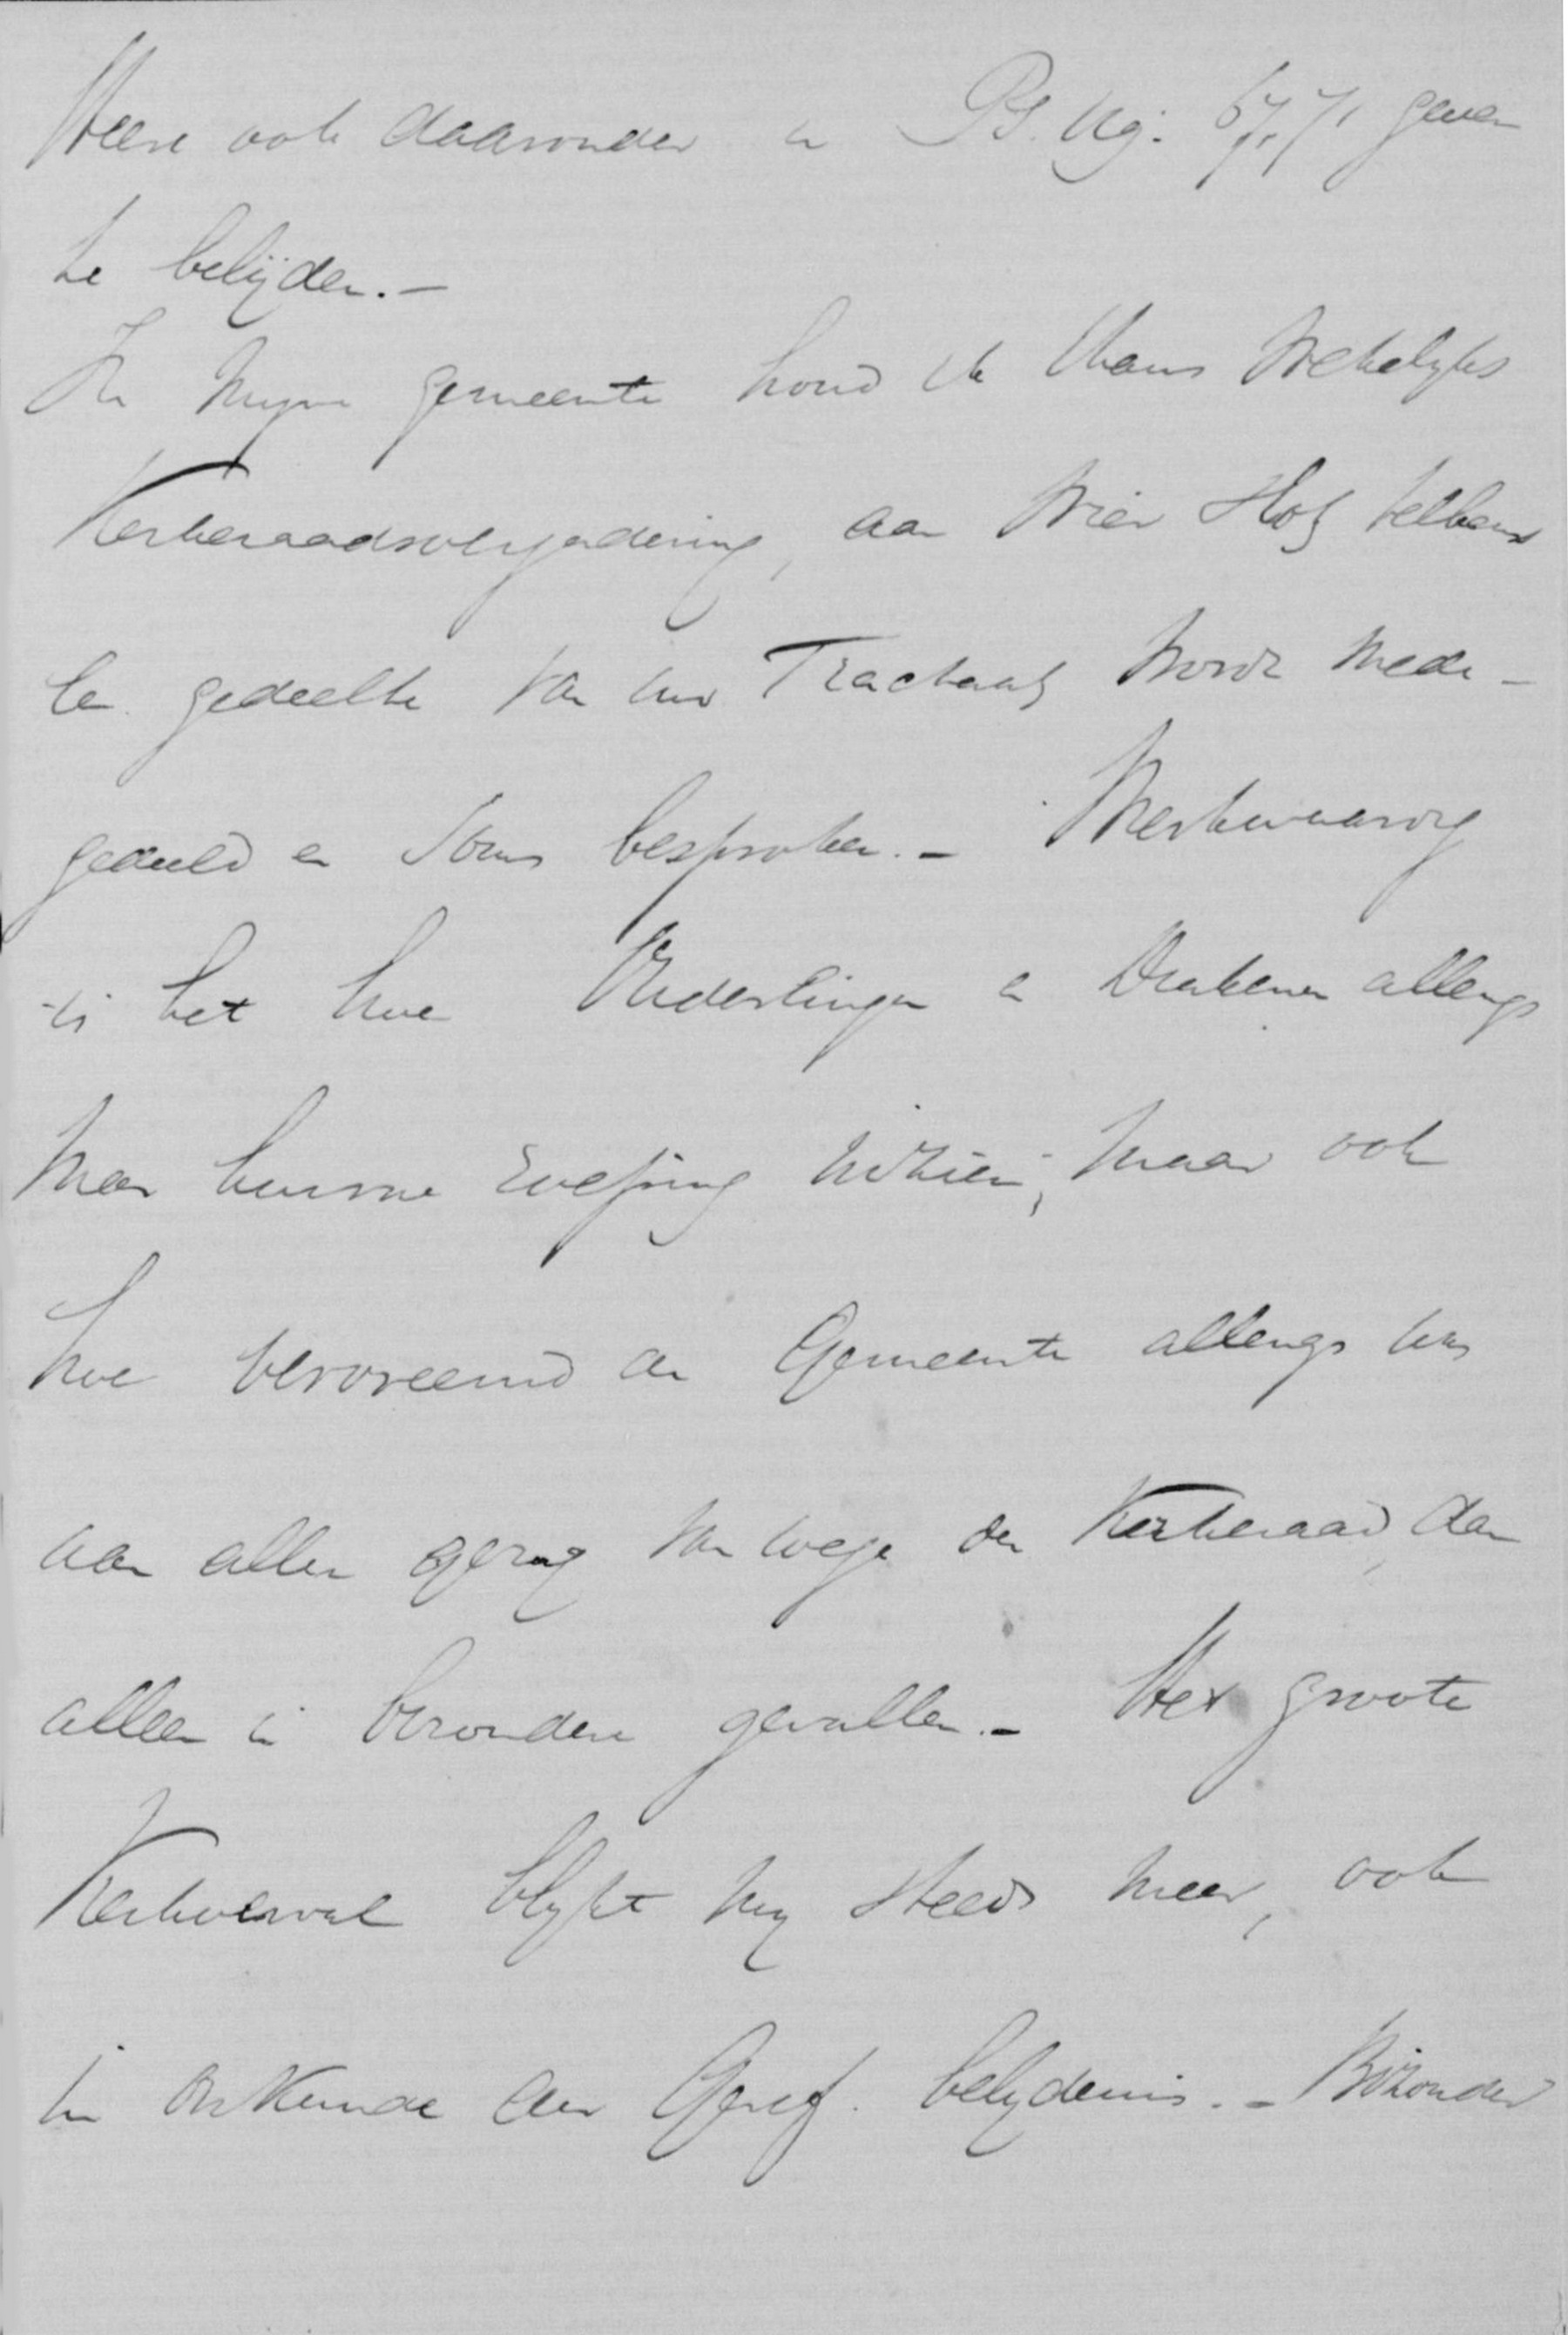 Heere ook daaronder en Ps. 119: 67, 71 geven
te belijden. –
In mijne gemeente houd ik thans wekelijks
Kerkeraadsvergadering, aan wier slot telkens
een gedeelte van uw Tractaat wordt mede-
gedeeld en soms besproken. – Merkwaardig
is het hoe Ouderlingen en Diakenen allengs
meer hunne roeping inzien; maar ook
hoe vervreemd de Gemeente allengs was
van allen opzig van wege den Kerkeraad, dan
alleen in bizondere gevallen. – Het groote
Kerkverval blijkt mij steeds meer, ook
in onkunde der Geref. belijdenis. – Bizonder